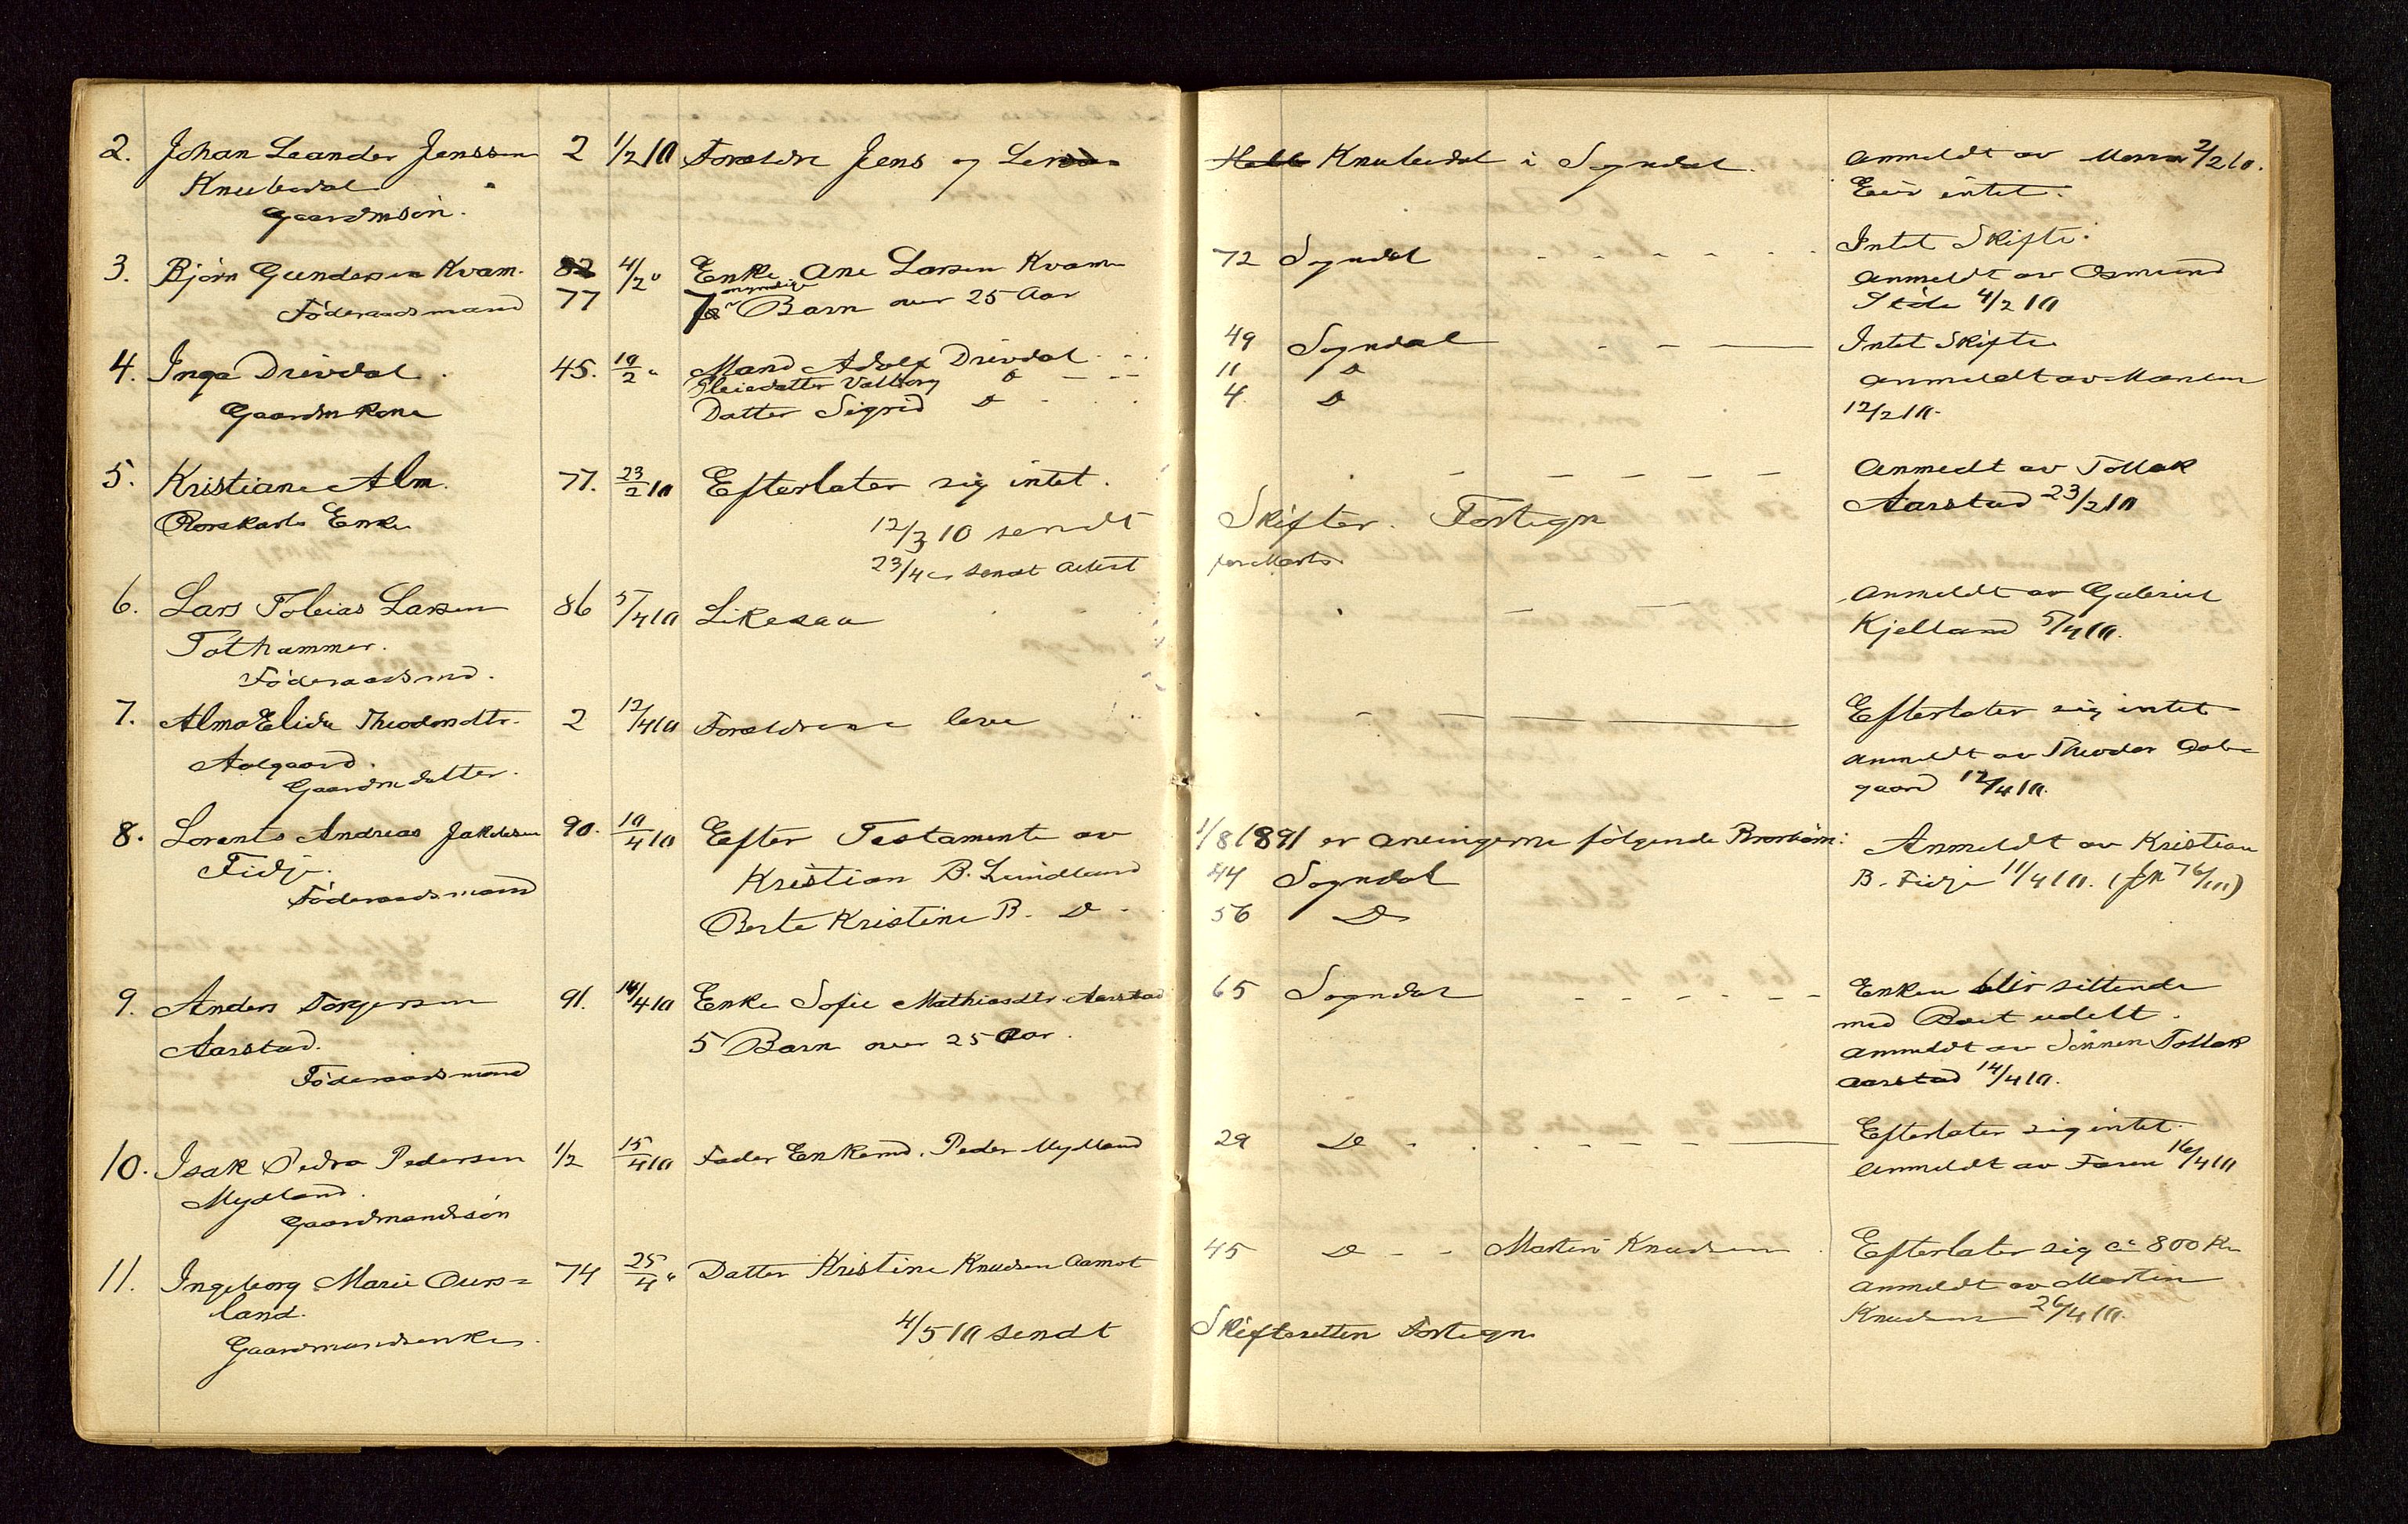 2. Johan Leander Jenssen 2 1/2 10 Forældre Jens og Knubedal i Sogndal. Anmeldt av 2/2 10.
Knubedal Eier intet.
Gaardmsön.
3. Björn Gundersen Kvam. 82 4/2 " Enke Ane Larsen Kvam 72 Sogndal Intet Skifte.
Föderaadsmand 77 7 myndige Barn over 25 Aar Anmeldt av Osmund
Stöle 4/2 10
4. Inga Drivdal. 45. 10/2 " Mand Adolf Drivdal 49 Sogndal Intet Skifte
Gaardmkone Pleiedatter Valborg Do 11 Do Anmeldt av Manden
Datter Sigrid Do 4 Do 12/2 10.
5. Kristiane Alm. 77. 23/2 10 Efterlater sig intet. Anmeldt av Tollak
Enke 12/3 10 sendt Skifter. Fortegn Aarstad 23/2 10
23/4 sendt Attest for Marts
6. Lars Tobias Larsen 86 5/4 10 Likesaa Anmeldt av Gabriel
Tothammer. Kjelland 5/4 10.
Föderaadsmd.
7. Alma Elida Theodorsdtr. 2 12/4 10 Forældrene leve Efterlater sig intet
Aalgaard. Anmeldt av Theodor Aal-
Gaardmdatter. gaard 12/4 10.
8. Lorents Andreas Jakobsen 90. 10/4 10 Efter Testamente av 1/8 1891 er arvingerne følgende Brorbörn: Anmeldt av Kristian
Fidje. Kristian B. Lindland 44 Sogndal B. Fidje 11/4 10.
Föderaadsmand Berte Kristine B. Do 56 Do
9. Anders Torgersen 91. 14/4 10 Enke Sofie Mathiasdtr Aarstad 65 Sogndal Enken blir sittende
Aarstad. 5 Barn over 25 Aar. med Boet udelt.
Föderaadsmand Anmeldt av Sönnen Tollak
Aarstad 14/4 10.
10. Isak Pedersen 1/2 15/4 10 Fader Enkemd. Peder Mydland 29 Do Efterlater sig intet.
Mydland. Anmeldt av Faren 16/4 10
Gaardmandssön
11. Ingeborg Marie Ours= 74 25/4 " Datter Kristine Knudsen Aamot 45 Do Martin Knudsen Efterlater sig ca 800 Kr
land. Anmeldt av Martin
Gaardmandsenke. 4/5 10 sendt Skifteretten Fortegn Knudsen 26/4 10.